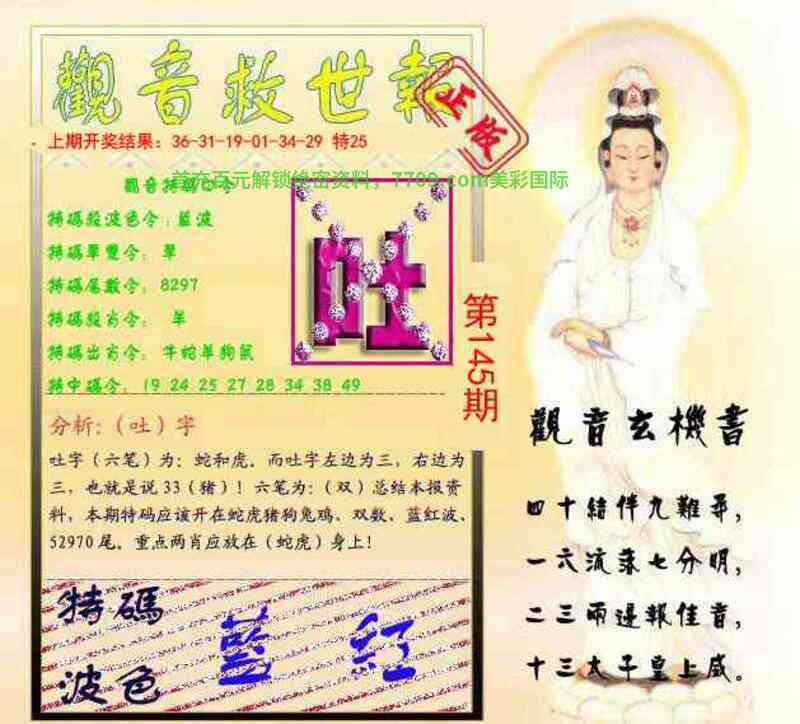 觀音救世報
正版
上期开奖结果：36-31-19-01-34-29 特25
觀音特碼口令
首充百元解锁绝密资料，7709.com美彩国际
特碼段波色令：藍波
特碼單雙令：單
特碼尾數令：8297
特碼殺肖令：羊
特碼出肖令：牛蛇羊狗鼠
特中碼令：19 24 25 27 28 34 38 49
吐
第145期
分析：（吐）字
吐字（六笔）为：蛇和虎。而吐字左边为三，右边为
三，也就是说33（猪）！六笔为：（双）总结本报资
料，本期特码应该开在蛇虎猪狗兔鸡、双数、蓝红波、
52970尾。重点两肖应放在（蛇虎）身上！
特碼
波色
藍 紅
觀音玄機書
四十結伴九難尋，
一六流落七分明，
二三兩邊報佳音，
十三太子皇上威。